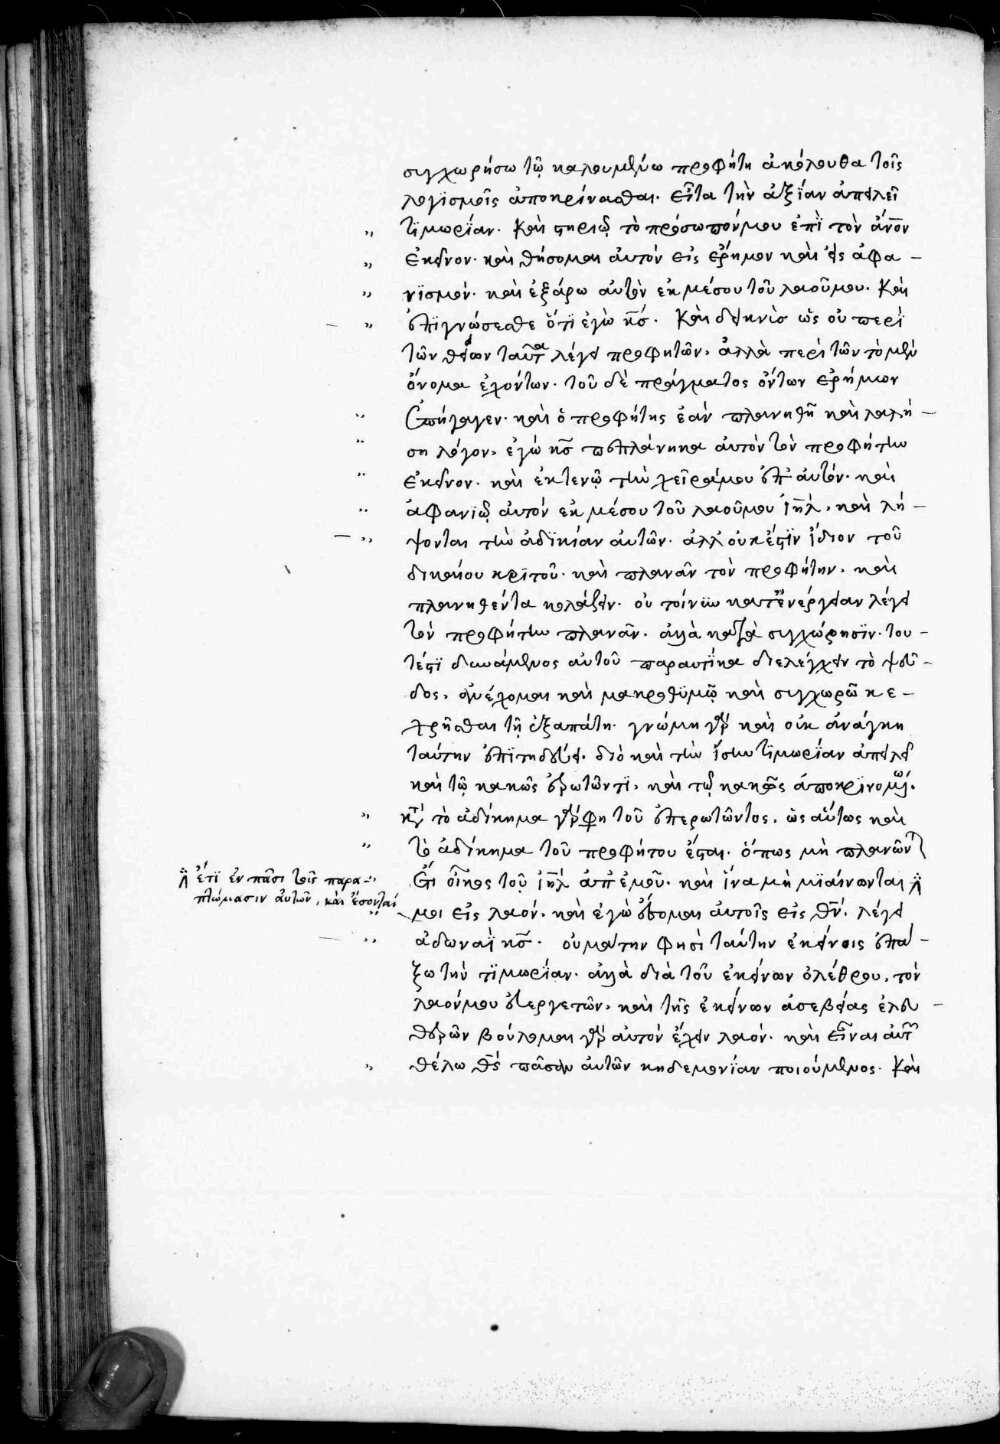 συγχωρήσω τῷ καλουμένῳ προφήτῃ ἀκόλουθα τοῖς
λογισμοῖς ἀποκρίνασθαι. εἶτα τὴν ἀξίαν ἀπειλεῖ
τιμωρίαν. καὶ στηριῶ τὸ πρόσωπόν μου ἐπὶ τὸν ἄνον
ἐκεῖνον. καὶ θήσομαι αὐτὸν εἰς ἔρημον καὶ εἰς ἀφα-
νισμόν. καὶ ἐξάρω αὐτὸν ἐκ μέσου τοῦ λαοῦ μου. καὶ
ἐπιγνώσεσθε ὅτι ἐγὼ κς. καὶ δεικνὺς ὡς οὐ περὶ
τῶν θείων ταῦτα λέγει προφητῶν, ἀλλὰ περὶ τῶν τὸ μὲν
ὄνομα ἐχόντων. τοῦ δὲ πράγματος ὄντων ἐρήμων
ἐπήγαγεν. καὶ ὁ προφήτης ἐὰν πλανηθῆ καὶ λαλή-
ση λόγον, ἐγὼ κς πεπλάνηκα αὐτὸν τὸν προφήτην
ἐκεῖνον. καὶ ἐκτενῶ τὴν χεῖρά μου ἐπ' αὐτόν. καὶ
ἀφανιῶ αὐτὸν ἐκ μέσου τοῦ λαοῦ μου ιηλ, καὶ λή-
ψονται τὴν ἀδικίαν αὐτῶν. ἀλλ' οὐκ ἔστιν ἴδιον τοῦ
δικαίου κριτοῦ. καὶ πλανᾶν τὸν προφήτην, καὶ
πλανηθέντα κολάζειν. οὐ τοίνυν κατ' ἐνέργειαν λέγει
τὸν προφήτην πλανᾶν. ἀλλὰ κατὰ συγχώρησιν. του-
τέστι δυνάμενος αὐτοῦ παραυτίκα διελέγχειν τὸ ψεῦ-
δος, ἀνέχομαι καὶ μακροθυμῶ καὶ συγχωρῶ κε-
χρῆσθαι τῇ ἐξαπάτῃ. γνώμῃ γὰρ καὶ οὐκ ἀνάγκῃ
ταύτην ἐπιτηδεύει. διὸ καὶ τὴν ἴσην τιμωρίαν ἀπειλεῖ
καὶ τῷ κακῶς ἐρωτῶντι, καὶ τῷ κακῶς ἀποκρινομένῳ.
κατὰ τὸ ἀδίκημα γάρ φη τοῦ ἐπερωτῶντος, ὡς αὕτως καὶ
τὸ ἀδίκημα τοῦ προφήτου ἔσται. ὅπως μὴ πλανῶνται
ἔτι οἶκος τοῦ ιηλ ἀπ' ἐμοῦ. καὶ ἵνα μὴ μιαίνωνται
ἔτι ἐν πᾶσι τοῖς παρα-
πτώμασιν αὐτῶν, καὶ ἔσονταί
μοι εἰς λαόν. καὶ ἐγὼ ἔσομαι αὐτοῖς εἰς θν. λέγει
ἀδωναῒ κς. οὐ μάτην φησὶ ταύτην ἐκείνοις ἐπά-
ξω τὴν τιμωρίαν. ἀλλὰ διὰ τοῦ ἐκείνων ὀλέθρου, τὸν
λαόν μου εὐεργετῶν, καὶ τῆς ἐκείνων ἀσεβείας ἐλευ-
θερῶν βούλομαι γὰρ αὐτὸν ἔχειν λαόν. καὶ εἶναι αὐτῶν
θέλω θς πᾶσαν αὐτῶν κηδεμονίαν ποιούμενος. καὶ